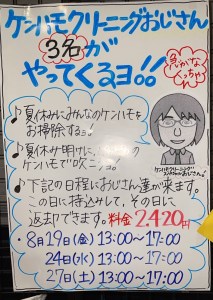 ケンハモクリーニングおじさん
3名が
やってくるヨ!!
♪夏休みにみんなのケンハモを
お掃除するヨ!
♪夏休み明けに、
ケンハモで吹こヨ!
♪下記の日程におじさん達が来ます。
この日に持込みして、その日に
返却できます。料金 2,420円
・8月19日(金) 13:00〜17:00
24日(水) 13:00〜17:00
27日(土) 13:00〜17:00
ケンハモクリーニング